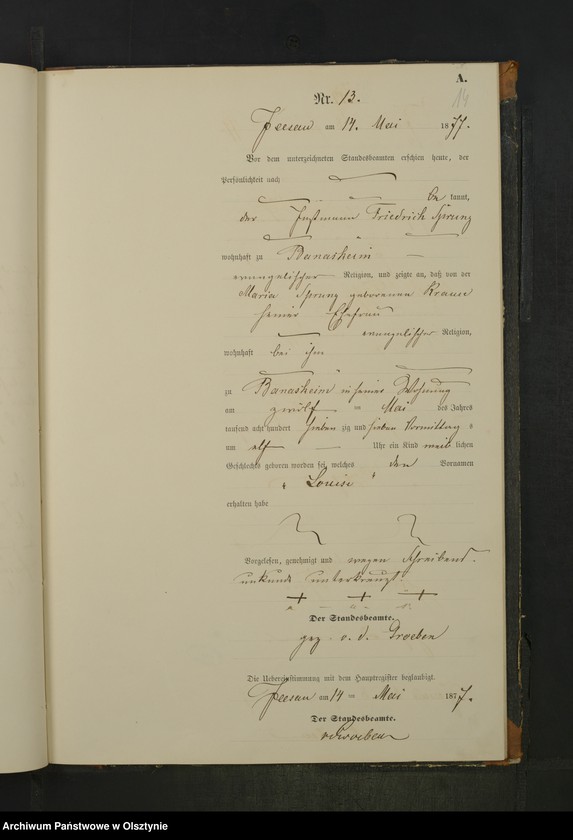 A.
14
Nr. 13.
am 14. Mai 1877.
Vor dem unterzeichneten Standesbeamten erschien heute, der
Persönlichkeit nach
be kannt,
der Instmann Friedrich Sprung
wohnhaft zu Banasheim
evangelischer Religion, und zeigte an, daß von der
Maria Sprung geborenen Krause
seiner Ehefrau
evangelischer Religion,
wohnhaft bei ihm
zu Banasheim in seiner Wohnung
am zwölf ten Mai des Jahres
tausend acht hundert sieben zig und sieben Vormittag s
um elf Uhr ein Kind weib lichen
Geschlechts geboren worden sei, welches den Vornamen
Louise
erhalten habe
Vorgelesen, genehmigt und wegen Schreibens-
unkunde unterkreuzt.
+ + +
Der Standesbeamte.
gez v. d. Groeben
Die Uebereinstimmung mit dem Hauptregister beglaubigt.
am 14 ten Mai 1877.
Der Standesbeamte.
vdGroeben
Archiwum Państwowe w Olsztynie